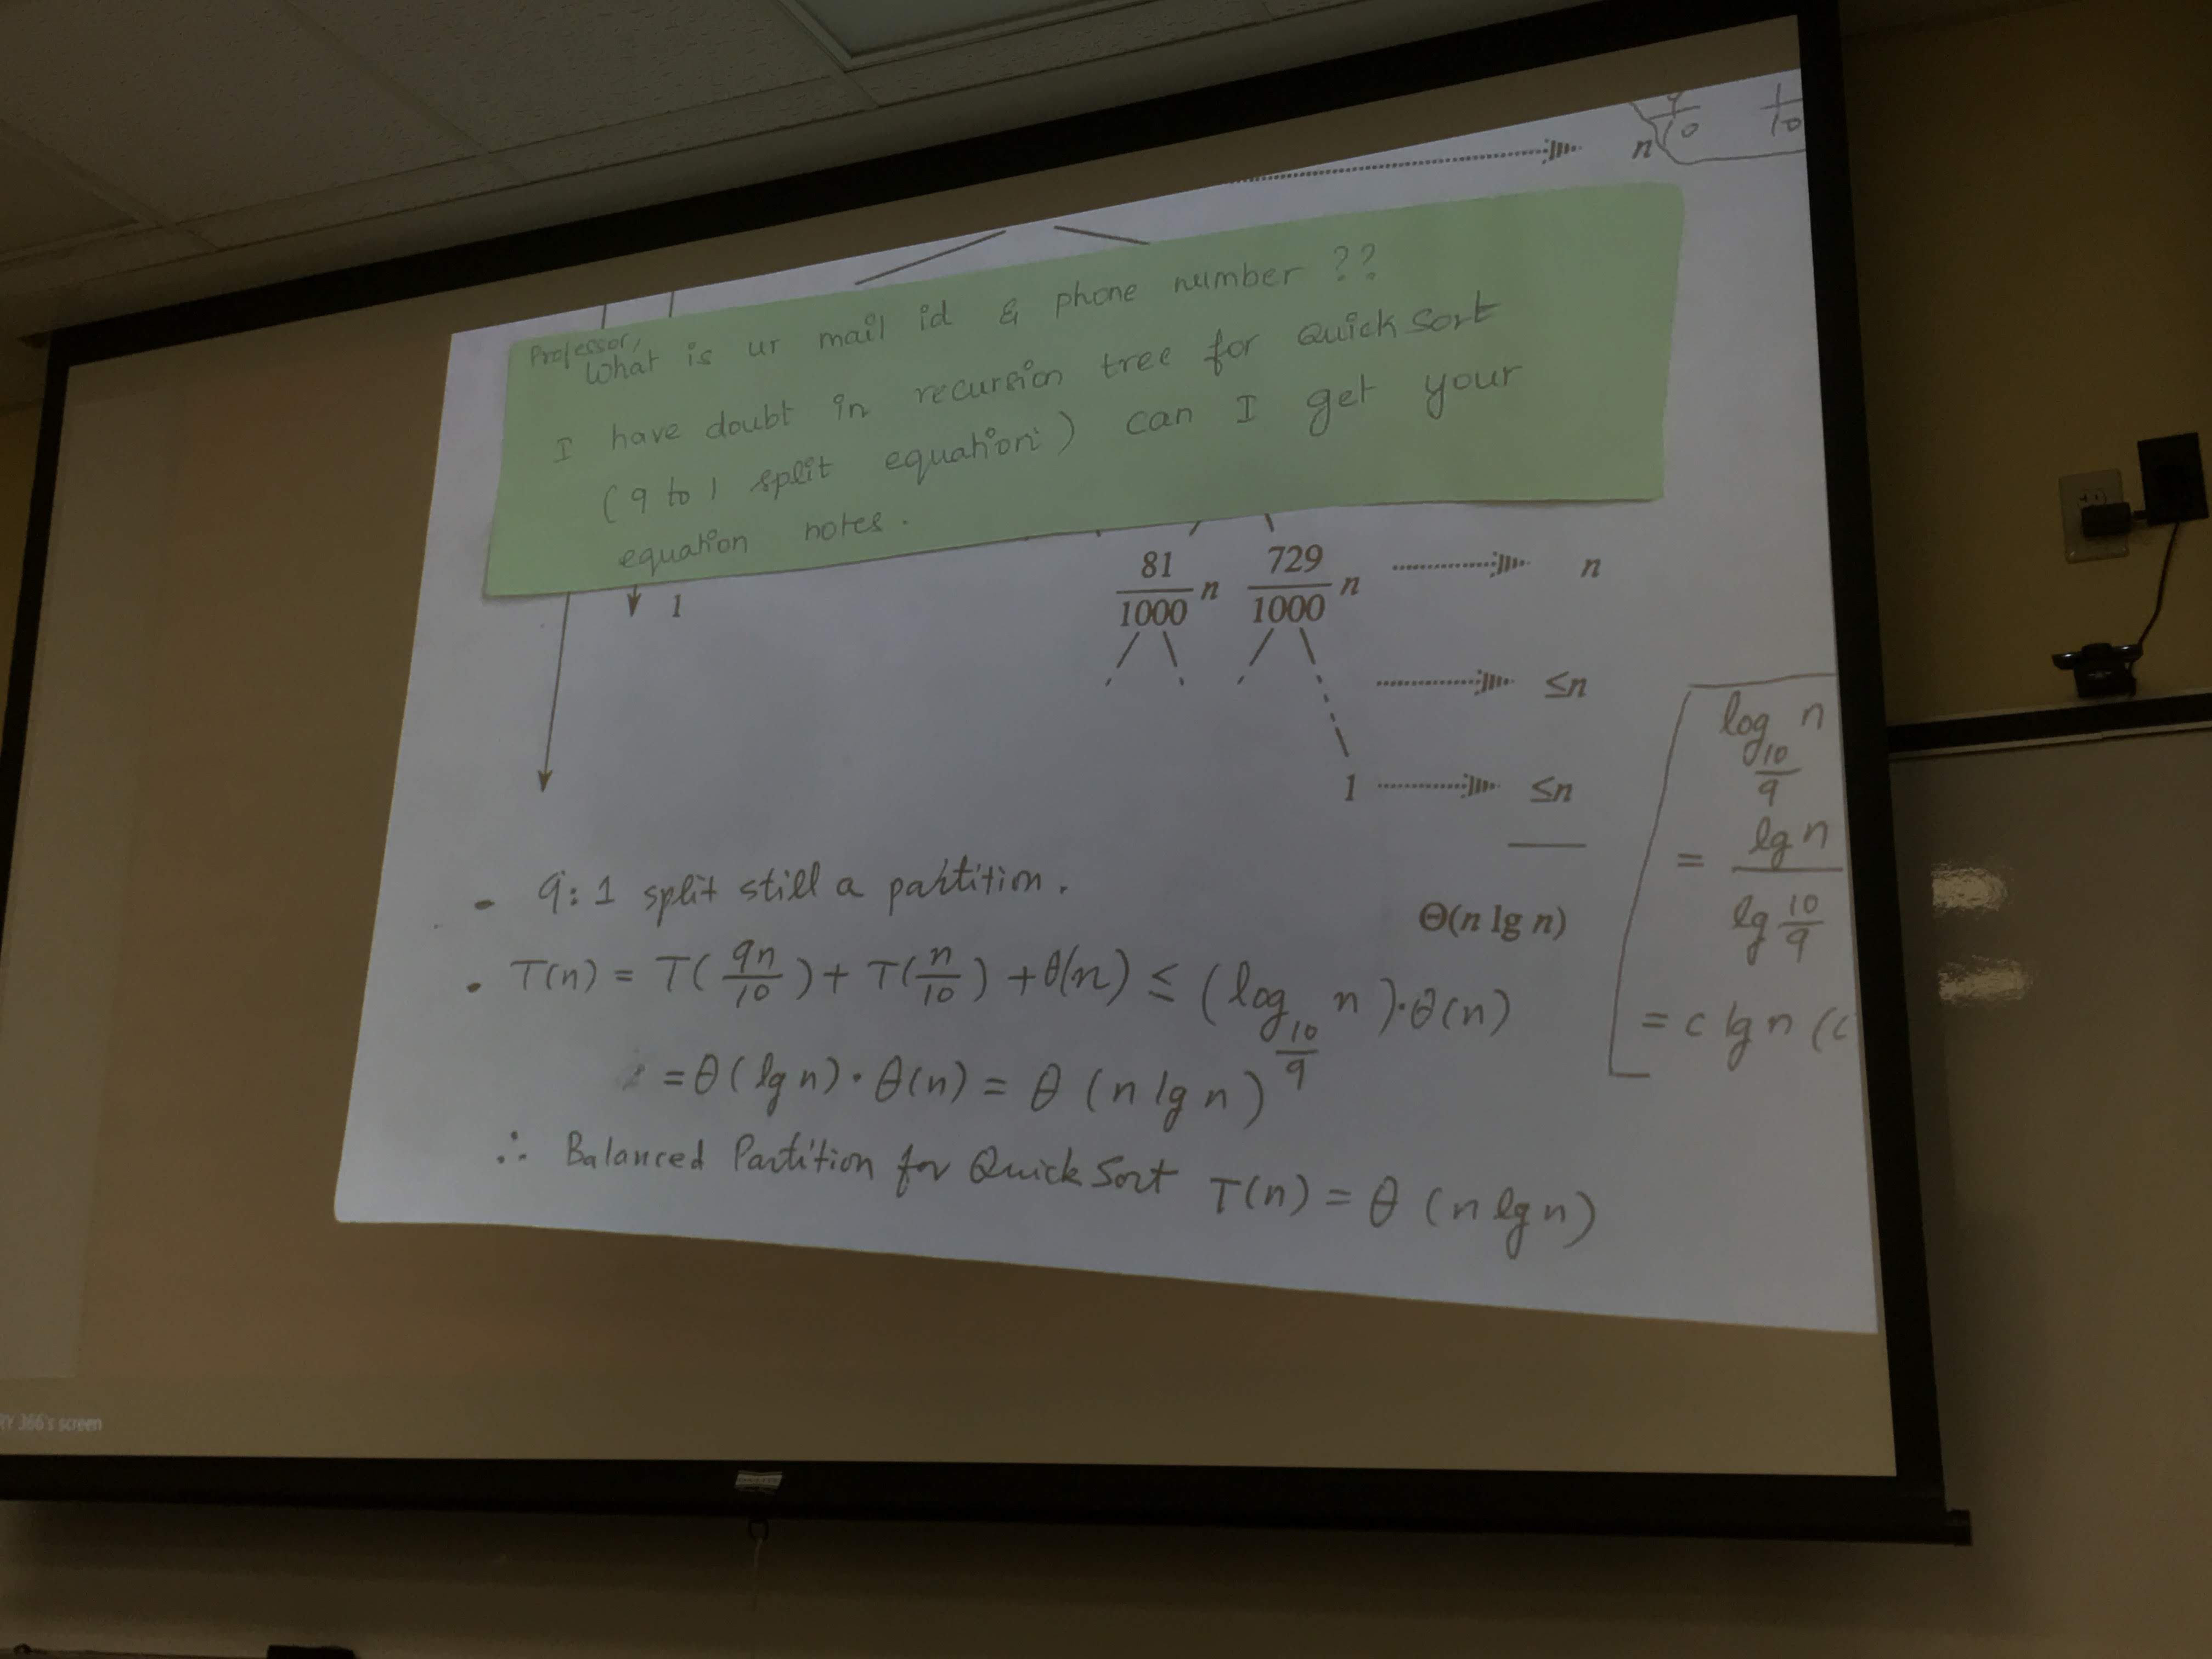 9/10 1/10
n
Professor,
What is ur mail id & phone number ??
I have doubt in recursion tree for Quick Sort
(9 to 1 split equation) can I get your
equation notes.
1
81/1000 n 729/1000 n n
≤n
1 ≤n
Θ(n lg n)
log_{10/9} n
= lg n / lg 10/9
= c lg n (c
- 9:1 split still a partition.
• T(n) = T(9n/10) + T(n/10) + θ(n) ≤ (log_{10/9} n)·θ(n)
= θ(lg n)·θ(n) = θ(n lg n)
∴ Balanced Partition for Quick Sort T(n) = θ(n lg n)
366's screen